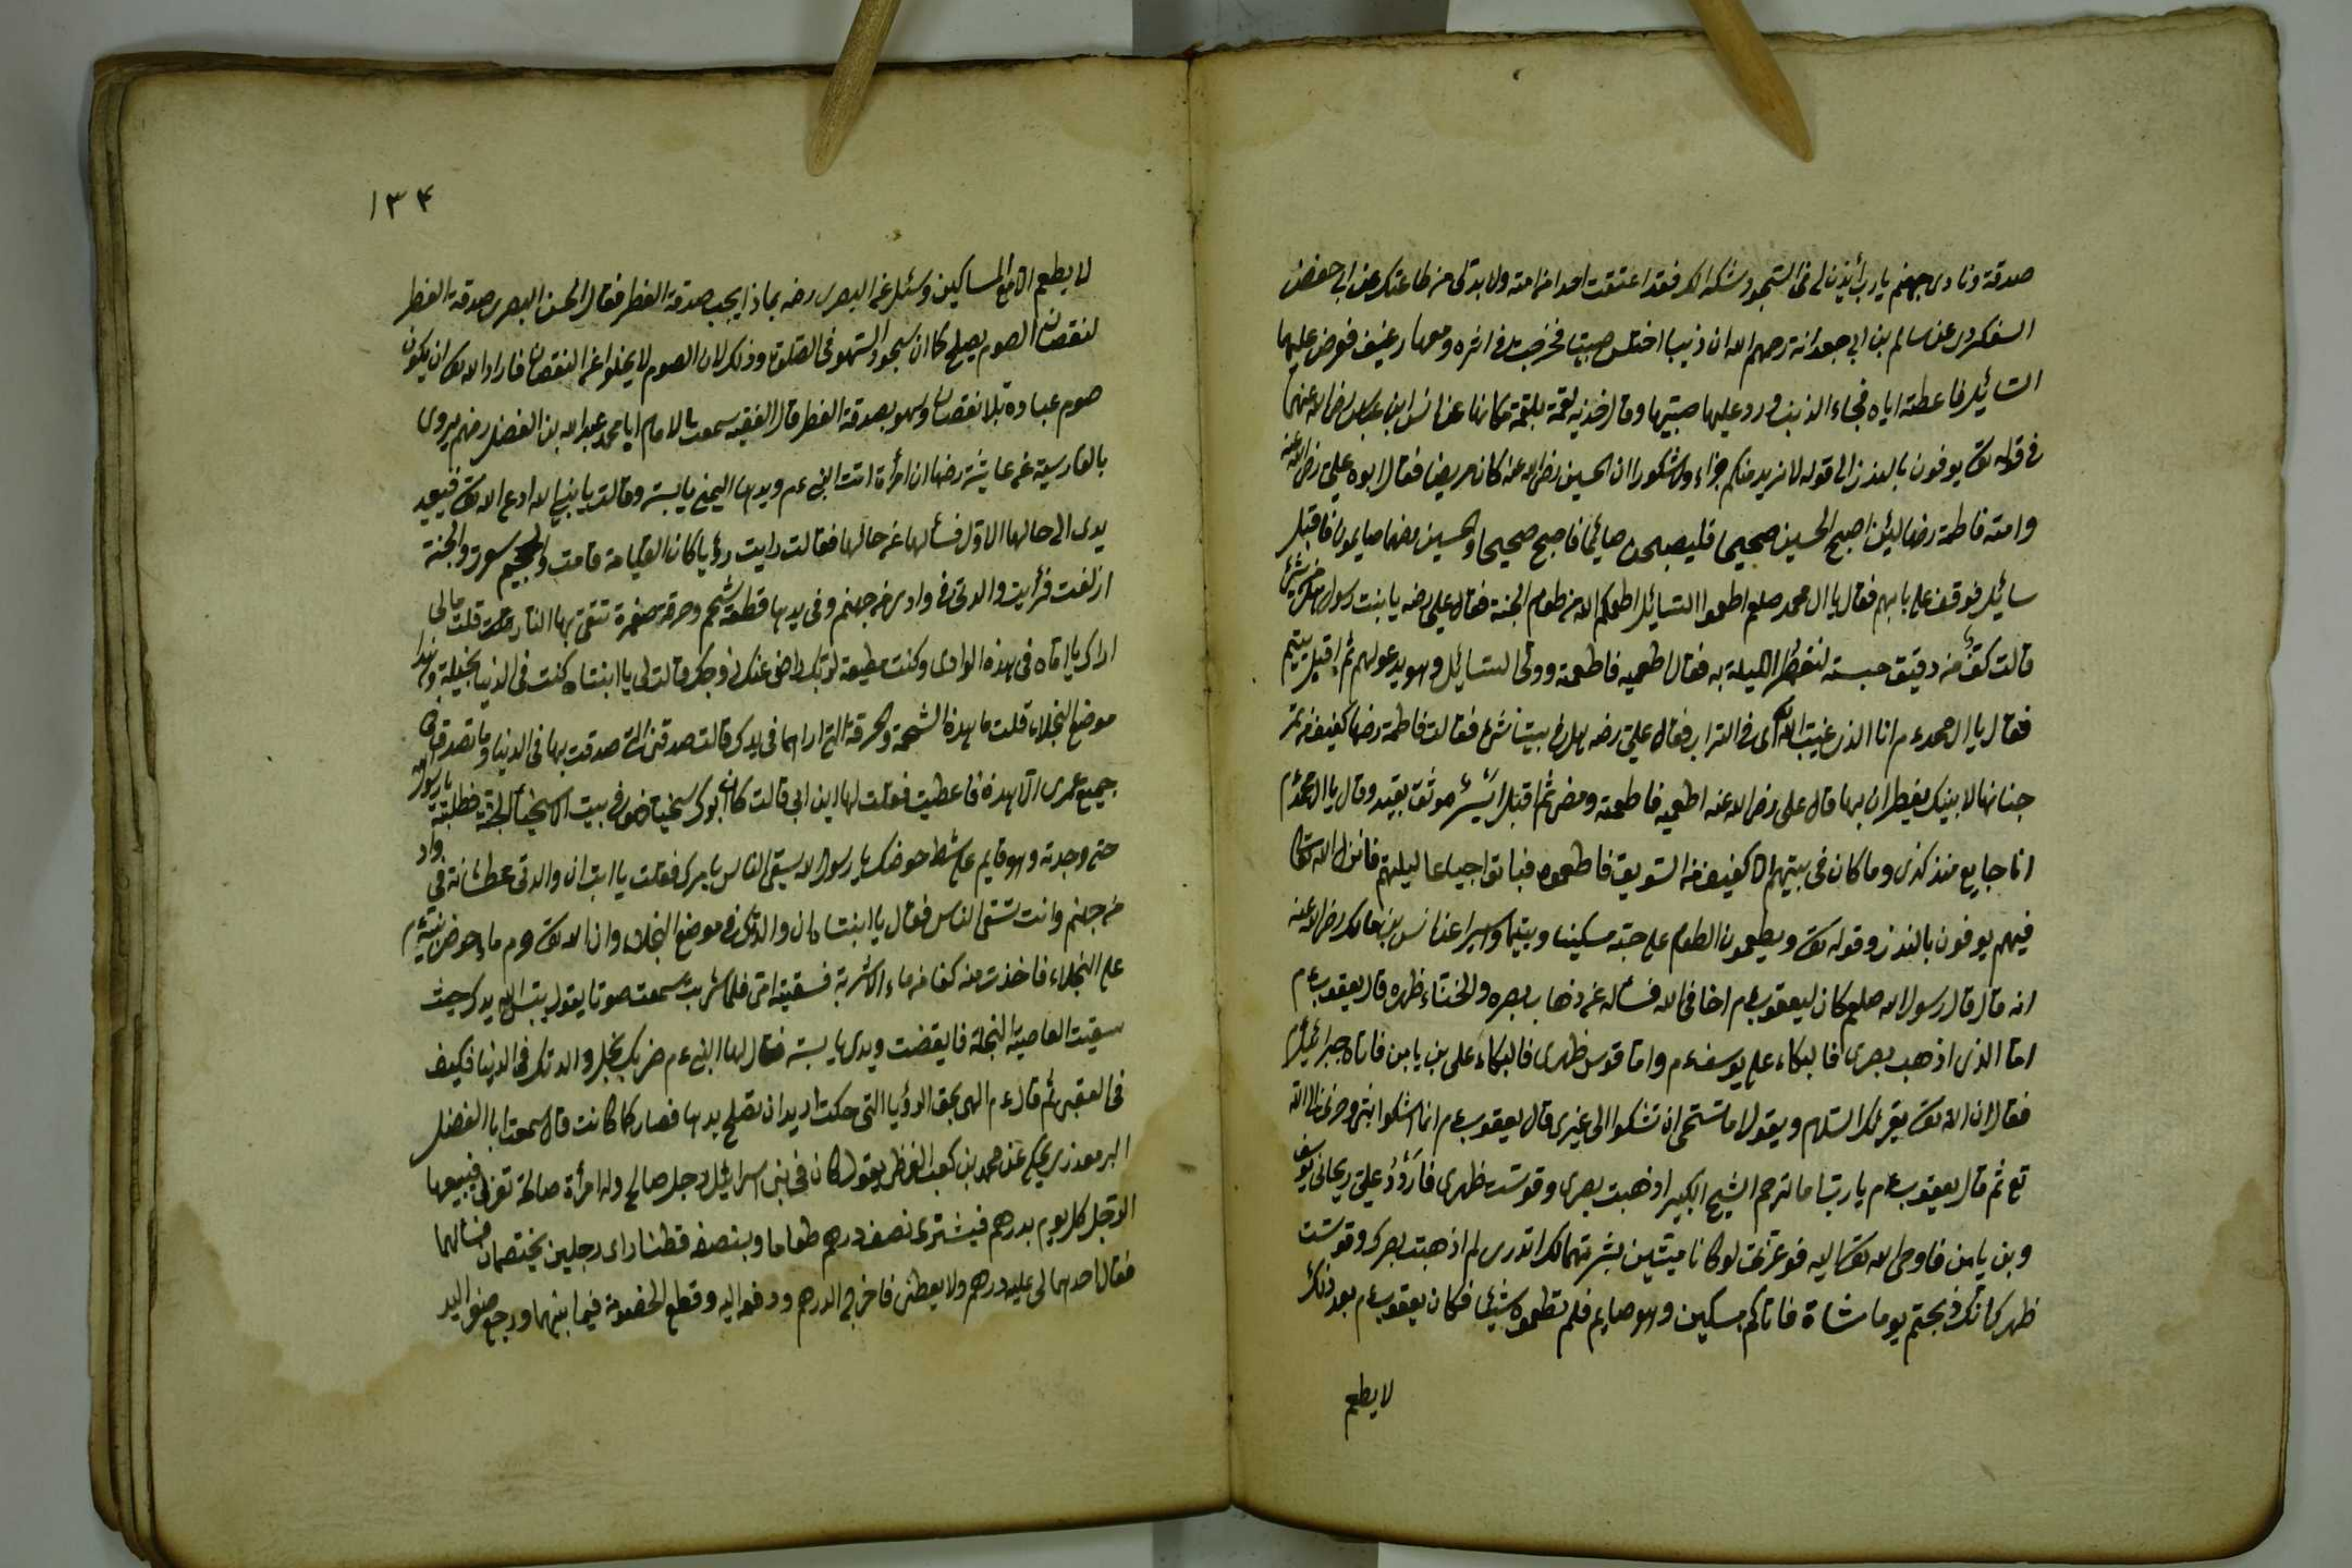 صدقة ونادى جهنم يارب أئذن لى فى السجود شكرا لك فقد اعتقت احدا من امة ولا بد لى من طاعتك عن ابى حفص
السفكردرى عن سالم بن ابى جعد انه رحمهم الله ان ذئبا اختلس صبيتا فخرجت فى اثره ومعها رغيف فعرض عليها
السائل فاعطته اياه فجاء الذئب ورد عليها صبيتها وقال خذيه لقمة بلقمة عن ابن عباس رضى الله عنهما
فى قوله تعا يوفون بالنذر الى قوله لا نريد منكم جزاء ولا شكورا ان الحسين رضى الله عنه كان مريضا فقال ابوه على رضى الله عنه
وامته فاطمة رضها لئن اصبح الحسين صحيحا فليصبحن صائما فاصبح صحيحا والحسين رضهما صايمون فاقبل
سائل فوقف على بابهم فقال يا ال محمد صلعم اطعموا السائل اطعمكم الله من طعام الجنة فقال على رضه يا بنت رسول الله
قالت كف من دقيق حبسته لنفطر الليلة به فقال اطعميه فاطعمته وولى السائل وهو يدعو لهم ثم اقبل يتيم
فقال يا ال محمد ءم انا الذى غيبت فى التراب فقال على رضه هل فى بيتنا شئ فقالت فاطمة رضها كفيف من تمر
خبأنها لابنيك يفطران بها قال على رضى الله عنه اطعميه فاطعمته ومضى ثم اقبل اسير موثق بقيد وقال يا ال محمد ءم
انا جايع منذ كذى وما كان فى بيتهم الا كفيف من السويق فاطعموه فباتوا جياعا ليلتهم فانزل الله تعا
فيهم يوفون بالنذر وقوله تعا ويطعمون الطعام على حبه مسكينا ويتيما واسيرا عن انس بن مالك رضى الله عنه
انه قال قال رسول الله صلعم كان ليعقوب ءم اخا فى الله فسأله عن ذهاب بصره وانحناء ظهره قال يعقوب ءم
اما الذى اذهب بصرى فالبكاء على يوسف ءم واما قوس ظهرى فالبكاء على بن يامن فاتاه جبرائيل ءم
فقال ان الله تعا يقرئك السلام ويقول اما تستحى ان تشكوا الى غيرى قال يعقوب ءم انما اشكوا بثى وحزنى الى الله
تع ثم قال يعقوب ءم يارب اما ترحم الشيخ الكبير اذهبت بصرى وقوست ظهرى فاردد على ريحانى يوسف
وبن يامن فاوحى الله تعا اليه فوعزتى لو كانا ميتين بشرتهما لك اتدرى لم اذهبت بصرك وقوست
ظهرك انك ذبحتم يوما شاة فاتاكم مسكين وهو صايم فلم تطعموه شيئا فكان يعقوب ءم بعد ذلك
لا يطعم
١٣٤
لا يطعم الا مع المساكين وسئل عن البصرى رضه بماذا يجب صدقة الفطر فقال الحسن البصرى صدقة الفطر
لنقصان الصوم يصلح كما ان سجود السهو فى الصلوة وذلك لان الصوم لا يخلوا عن النقصان فاراد الله تعا ان يكون
صوم عباده بلا نقصان وسهو بصدقة الفطر قال الفقيه سمعت بالامام ابا محمد عبد الله بن الفضل رضهم يروى
بالفارسية عن عايشة رضها ان امرأة اتت النبى ءم ويدها اليمنى يابسة وقالت يا نبى الله ادع الله تعا فيعيد
يدى الى حالها الاول فسألها عن حالها فقالت رايت رؤيا كان القيامة قامت والجحيم سعرت والجنة
ازلفت فرأيت والدتى فى وادى من جهنم وفى يدها قطعة شحم وخرقة صغيرة تتقى بها النار قلت مالى
اراك يا اماه فى هذه الوادى وكنت مطيعة لربك راض عنك زوجك قالت لى يا ابنتاه كنت فى الدنيا بخيلة وهذا
موضع البخلاء قلت ما هذه الشحمة والخرقة التى اراهما فى يدك قالت صدقتى التى صدقت بها فى الدنيا وما تصدقت فى
جميع عمرى الا هذه فاعطيت فقلت لها اين ابى قالت كان ابوك سخيا فهو فى بيت الاسخياء الجنة فطلبته يا رسول الله
حتى وجدته وهو قايم على شط حوضك يا رسول الله يسقى الناس بامرك فقلت يا ابت ان والدتى عطشانة فى واد
من جهنم وانت تسقى الناس فقال يا ابنتاه ان والدتك فى موضع البخلاء وان الله تعا حرم ماء حوض نبيه ءم
على البخلاء فاخذت منه كفا من ماء الاشربة فسقيته امى فلما شربت سمعت صوتا يقول يبس الله يدك حيث
سقيت العاصية البخلة فايقضت ويدى يابسة فقال لها النبى ءم ضربك بخل والدتك فى الدنيا فكيف
فى العقبى ثم قال ءم الهى بحق الرؤيا التى حكت اريد ان تصلح يدها فصار كما كانت قال سمعت ابا الفضل
البرمعذرى يحكى عن محمد بن كعب القرظى يقول كان فى بنى اسرائيل رجل صالح وله امرأة صالحة تغزل فيبيعها
الرجل كل يوم بدرهم فيشترى نصف درهم طعاما وبنصفه قطنا راى رجلين يختصمان فسالهما
فقال احدهما لى عليه درهم ولا يعطنى فاخرج الدرهم ودفع اليه وقطع الخصومة فيما بينهما ورجع صفر اليد